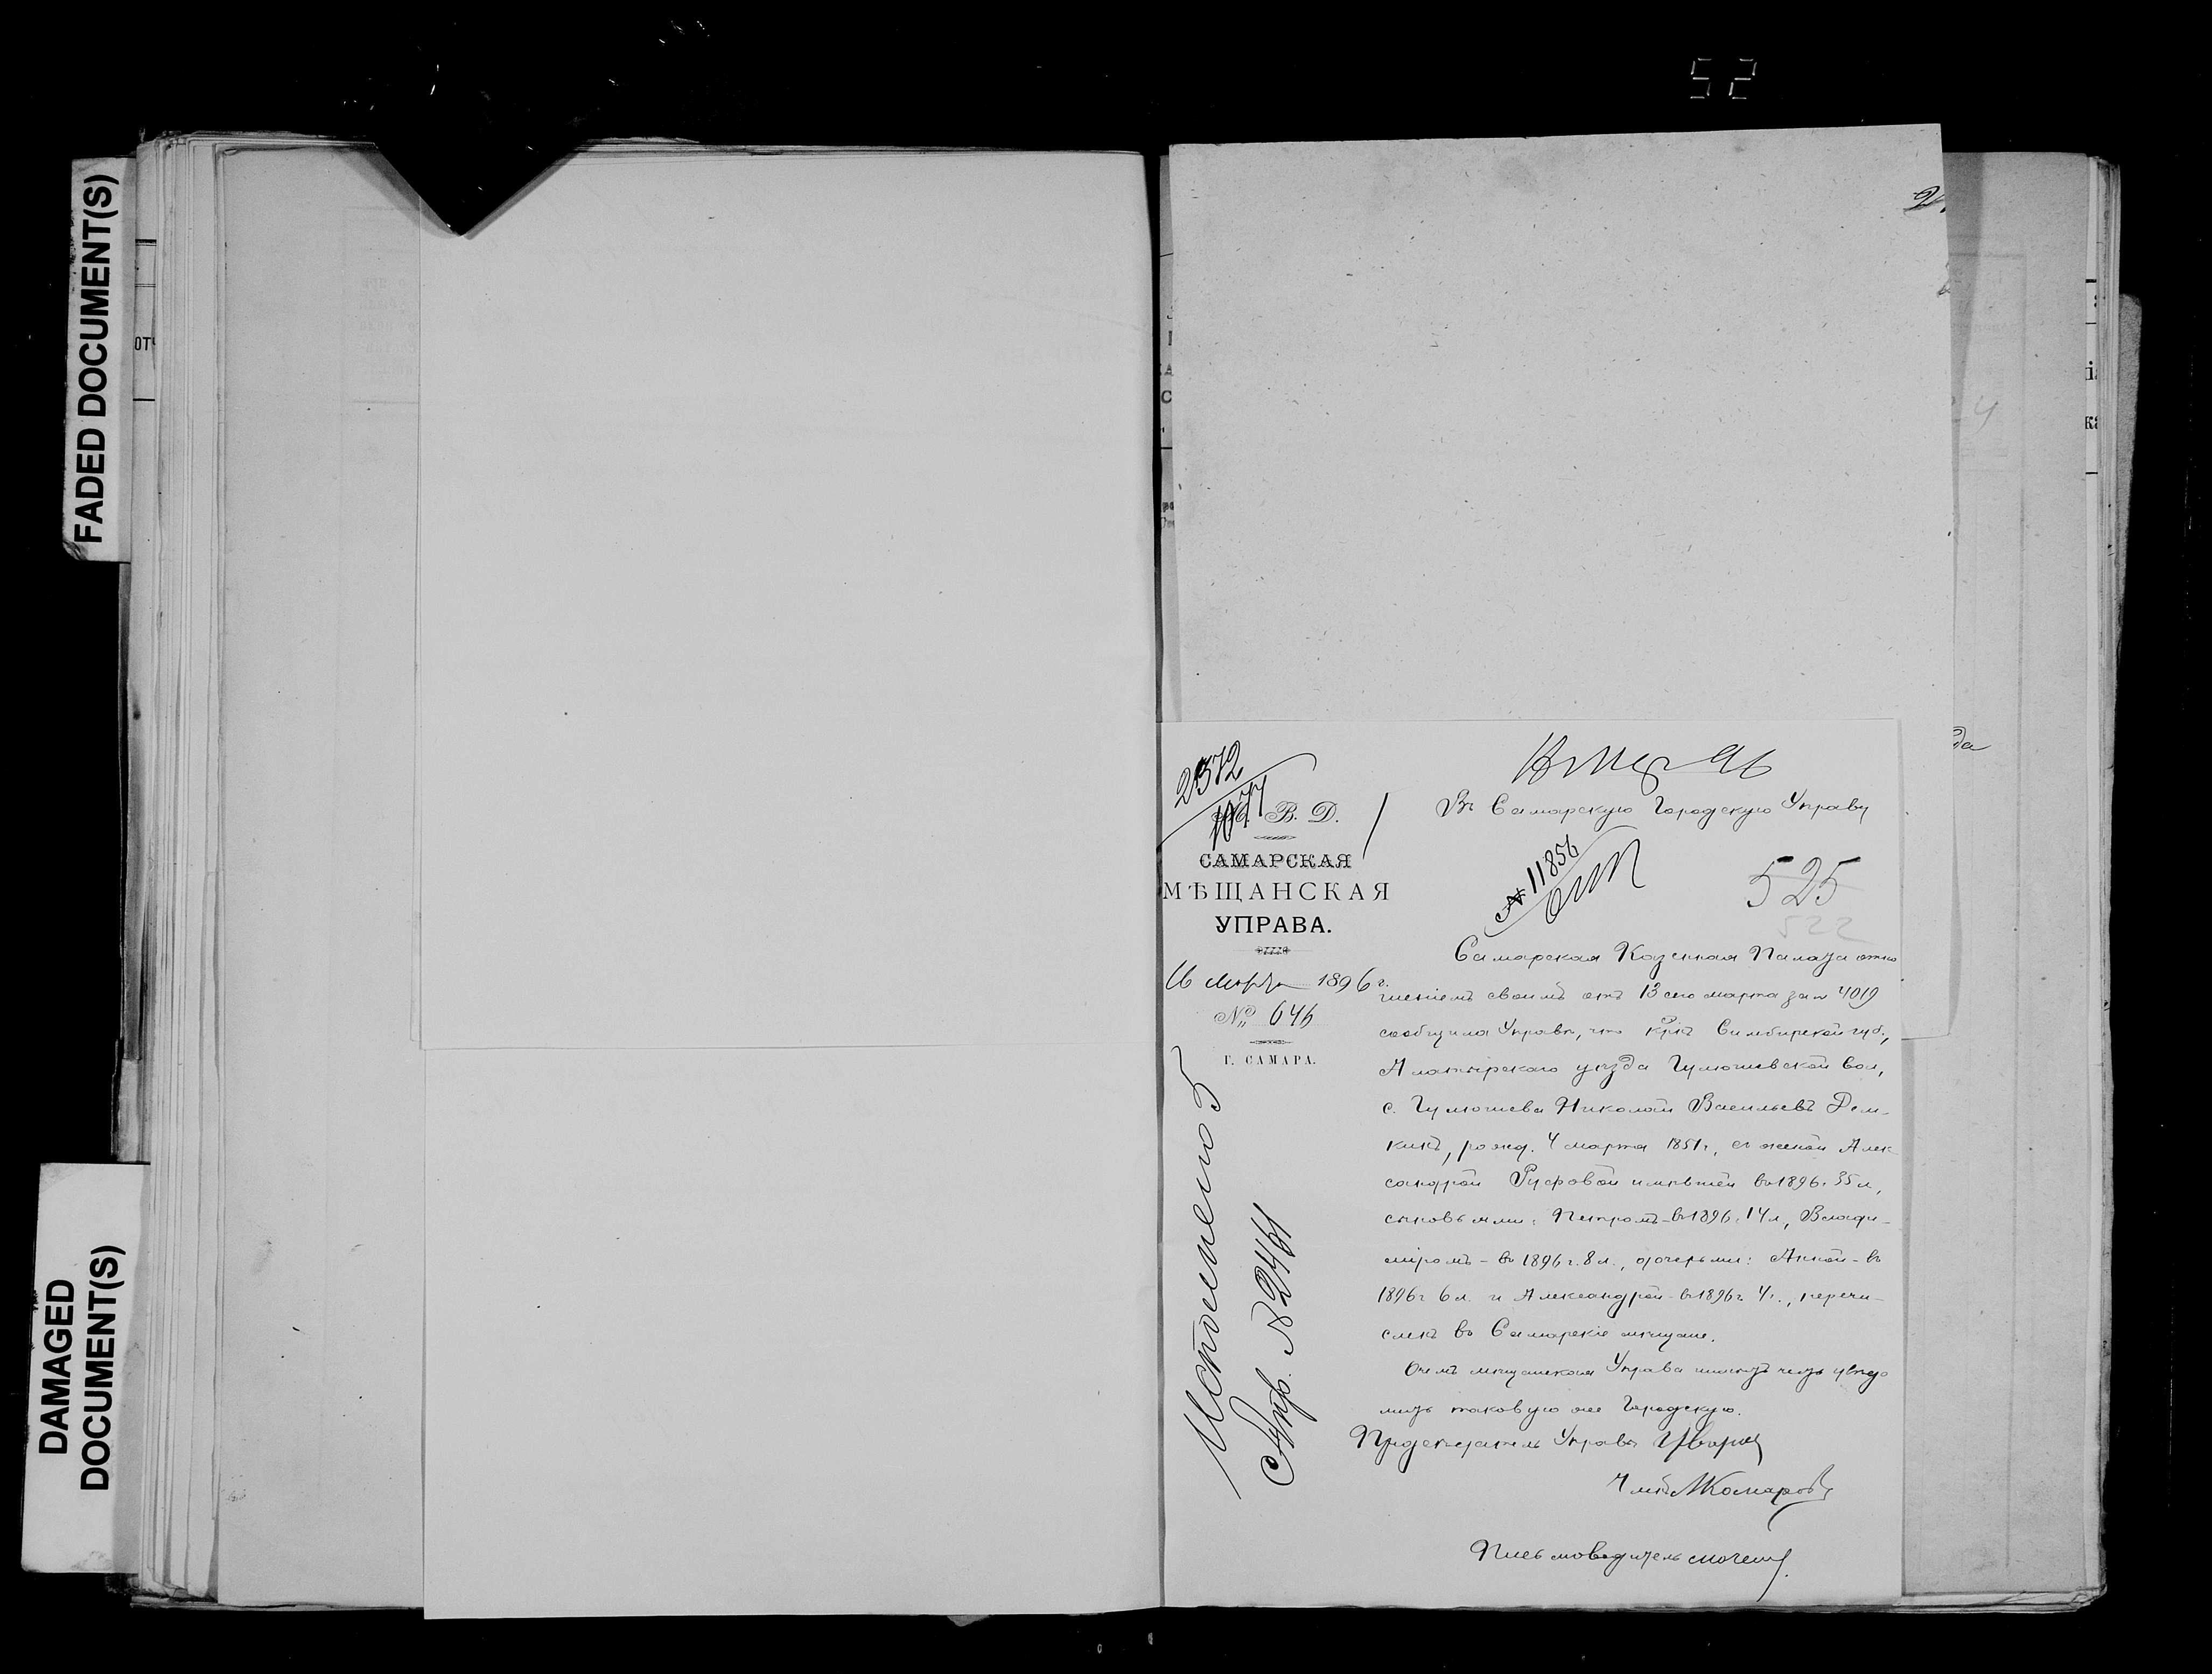 52
FADED DOCUMENT(S)
DAMAGED
DOCUMENT(S)
2372
1077
М. В. Д.
САМАРСКАЯ
МѢЩАНСКАЯ
УПРАВА.
16 Марта 1896 г.
№ 646
Г. САМАРА.
Исполнено
Апр. № 2461
96
Въ Самарскую Городскую Управу
№ 11856
525
522
Самарская Казенная Палата отно
шеніемъ своимъ отъ 13 сего марта за № 4019
сообщила Управѣ, что кр-нъ Симбирской губ.,
Алатырскаго уѣзда Чумошевской вол,
с. Чумошева Николай Васильевъ Дем-
кинъ, рожд. 4 марта 1851 г, съ женой Алек-
сандрой Руфовой имѣвшей въ 1896 г. 35 л,
сыновьями: Петромъ - въ 1896 г. 14 л, Влади-
міромъ - въ 1896 г. 8 л., дочерьми: Анной - въ
1896 г 6 л. и Александрой - въ 1896 г. 4 г., перечи-
сленъ въ Самарскіе мѣщане.
О чемъ мѣщанская Управа имѣетъ честь увѣдо
мить таковую же Городскую.
Предсѣдатель Управы
Членъ МКомаровъ
Письмоводитель